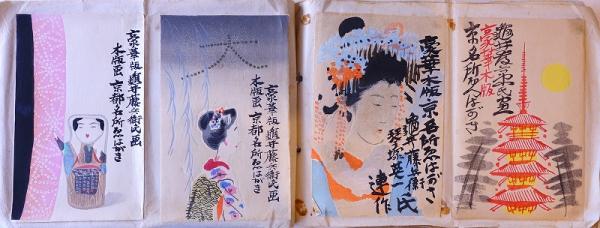 豪華版 亀井藤兵衛氏画
木版画 京都名所ゑはがき
豪華版 亀井藤兵衛氏画
木版画 京都名所ゑはがき
豪華木版京名所ゑはがき
亀井藤兵衛
琴塚英一氏
連作
亀井藤兵衛氏画
豪華木版
京名所ゑはがき